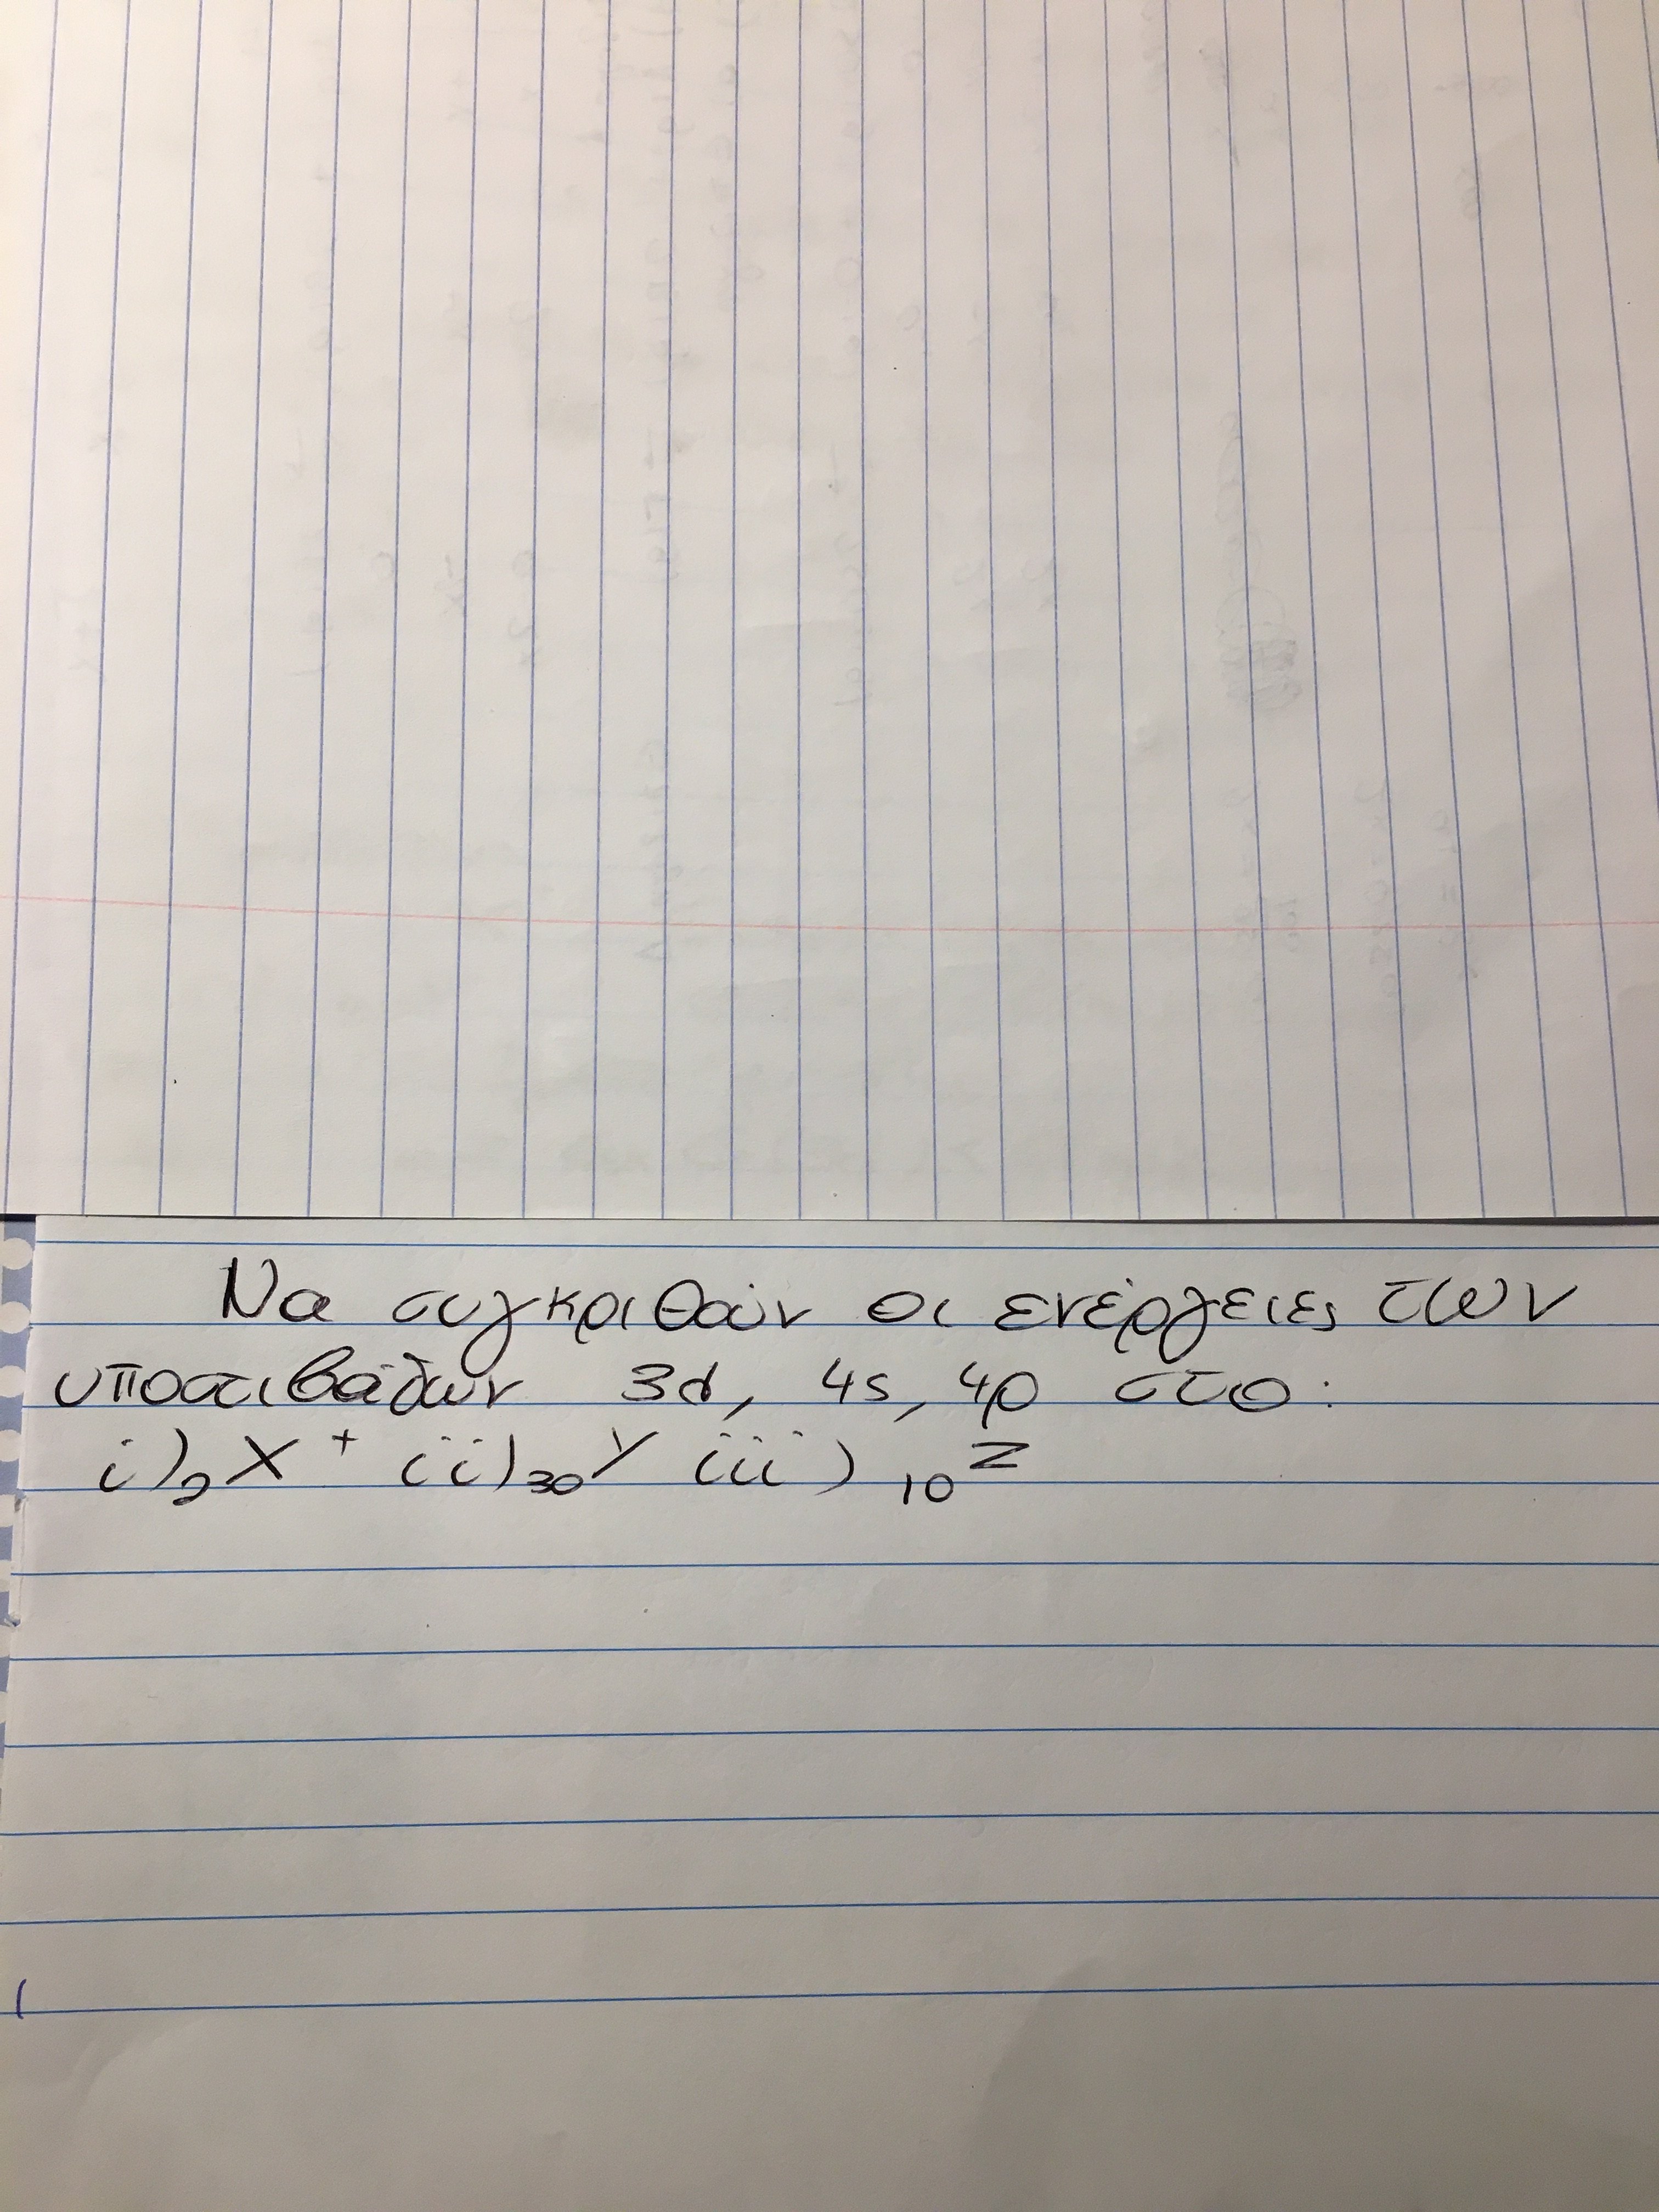 Να συγκριθούν οι ενέργειες των
υποστιβάδων 3d, 4s, 4p στο:
i) ₂X⁺ ii) ₃₀Y iii) ₁₀Z